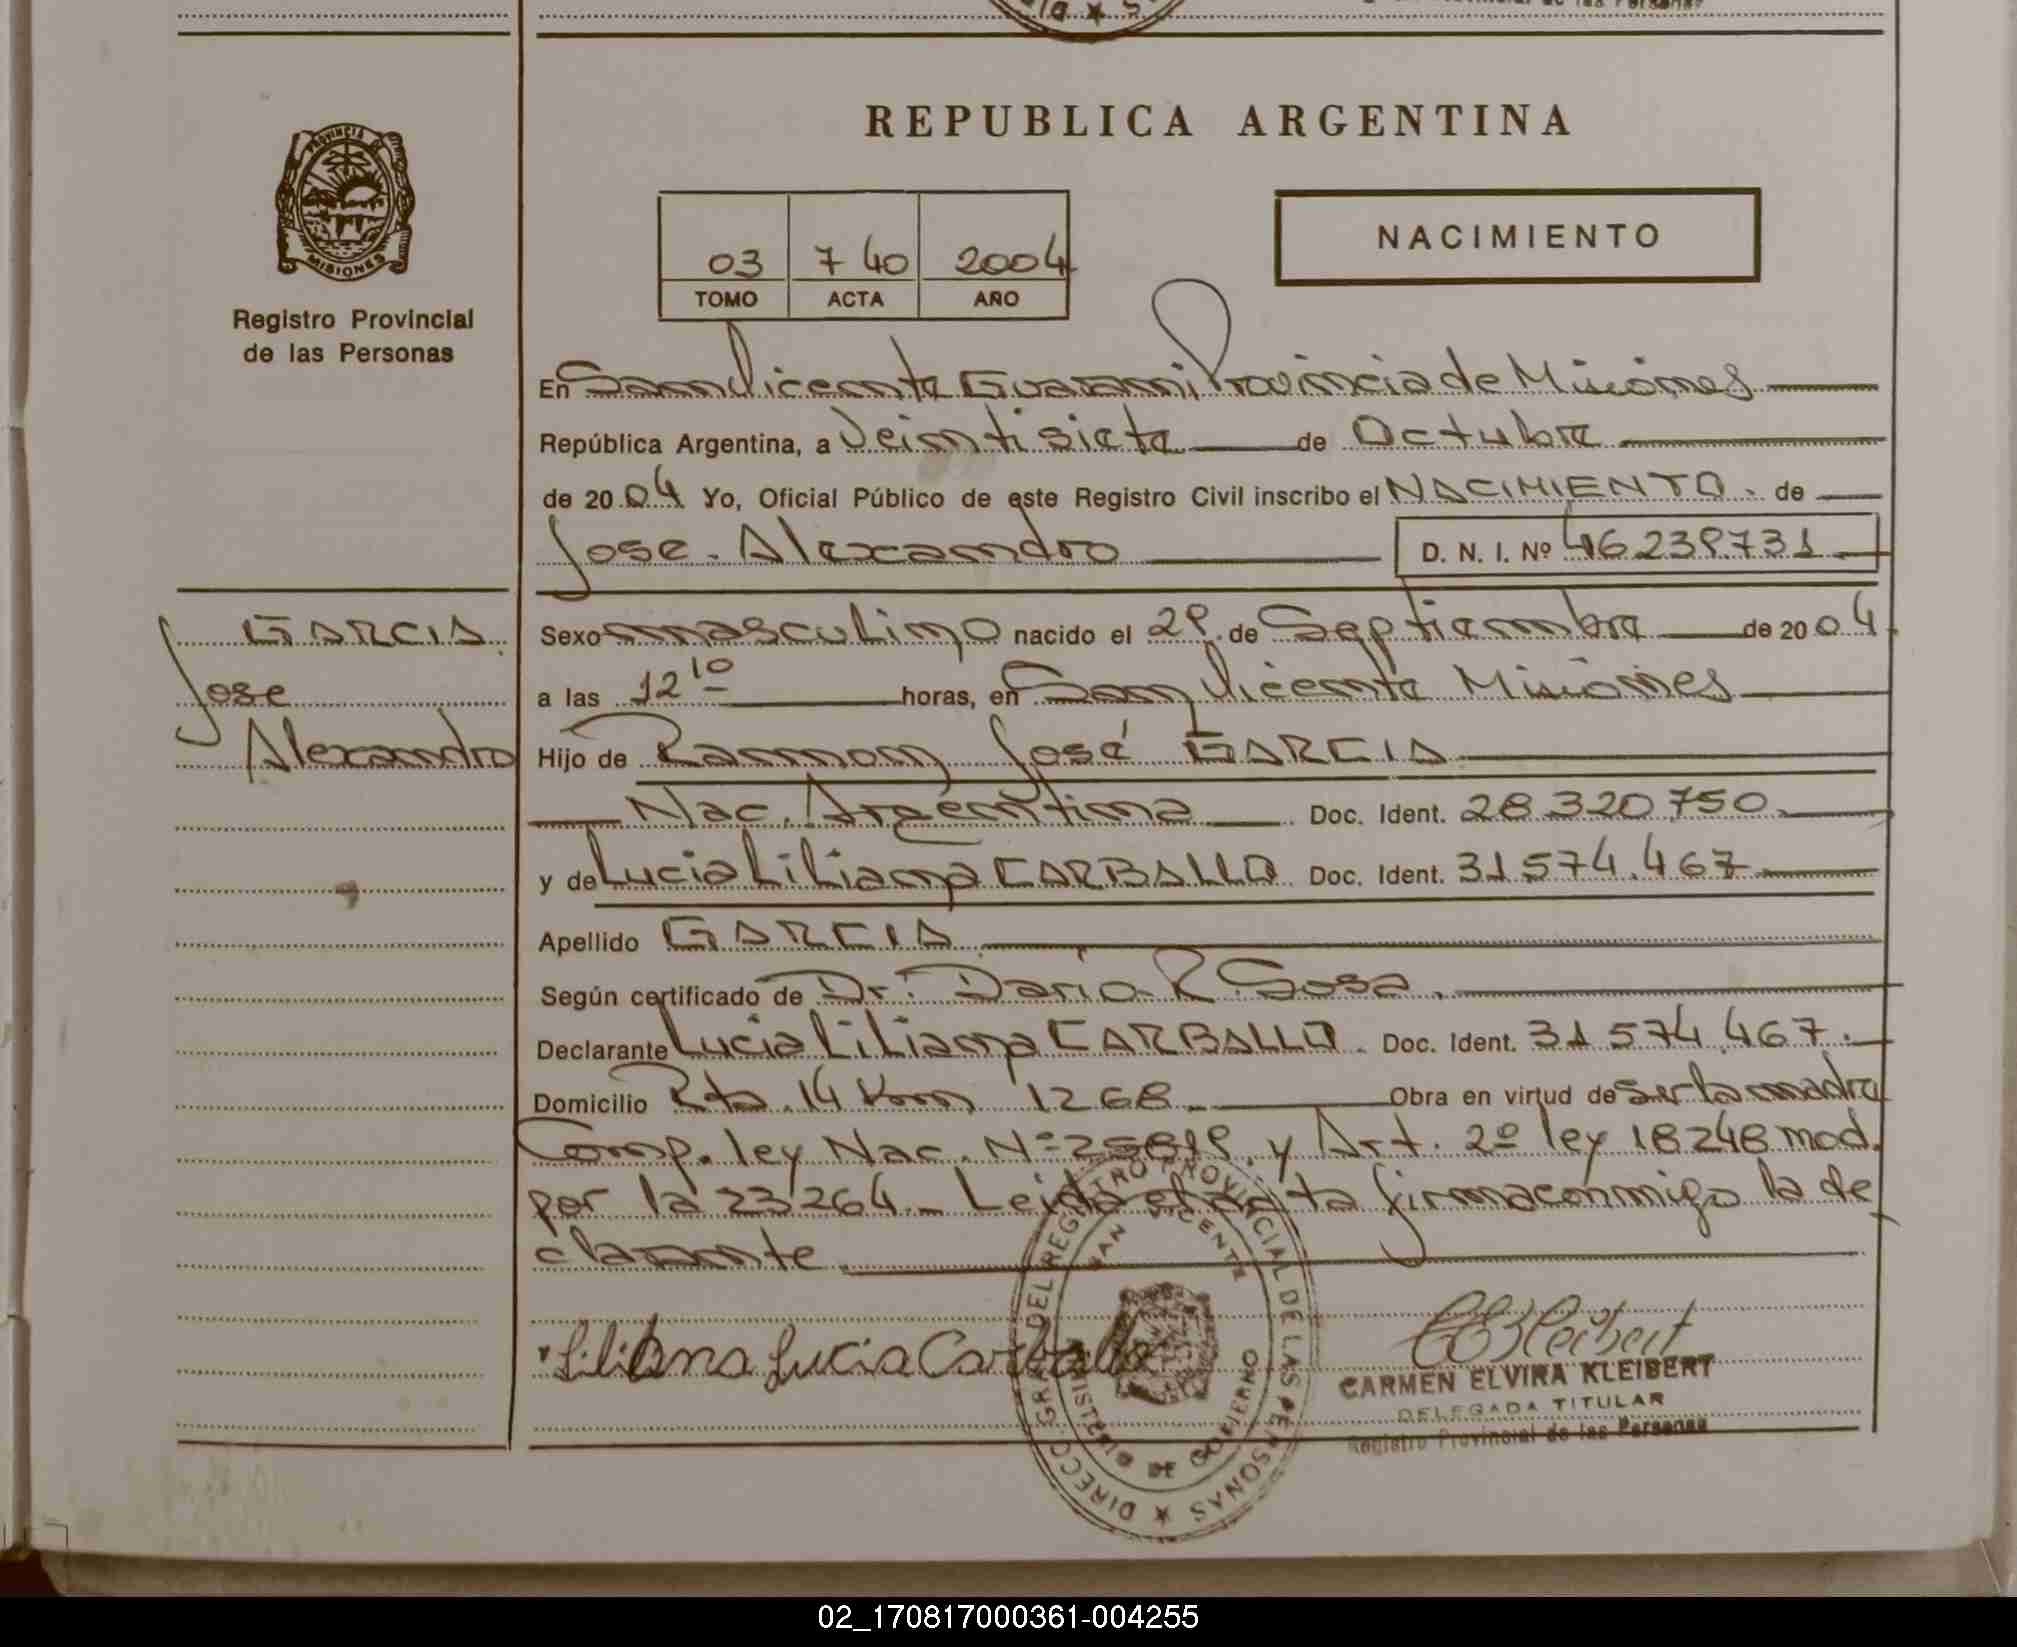 REPUBLICA ARGENTINA
PROVINCIA DE MISIONES
Registro Provincial
de las Personas
03 740 2004
TOMO ACTA AÑO
NACIMIENTO
En San Vicente Guarani Provincia de Misiones
República Argentina, a Veintisiete de Octubre
de 2004 Yo, Oficial Público de este Registro Civil inscribo el NACIMIENTO. de
Jose Alexandro D. N. I. Nº 46.239.731
GARCIA
Jose
Alexandro
Sexo masculino nacido el 29 de Septiembre de 2004
a las 12 10 horas, en San Vicente Misiones
Hijo de Ramon José GARCIA
Nac. Argentina Doc. Ident. 28.320.750
y de Lucia Liliana CARBALLO Doc. Ident. 31.574.467
Apellido GARCIA
Según certificado de Dr. Dario R. Sosa.
Declarante Lucia Liliana CARBALLO. Doc. Ident. 31.574.467.
Domicilio Rta. 14 Km 1268 Obra en virtud de ser la madre
Comp. ley Nac. Nº 25819 y Art. 2º ley 18248 mod.
por la 23264 - Leida el acta firma conmigo la de
clarante
Liliana Lucia Carballo
CEKleibert
CARMEN ELVIRA KLEIBERT
DELEGADA TITULAR
Registro Provincial de las Personas
DIRECC. GRAL. DEL REGISTRO PROVINCIAL DE LAS PERSONAS
SAN VICENTE
MINISTERIO DE GOBIERNO
02_170817000361-004255